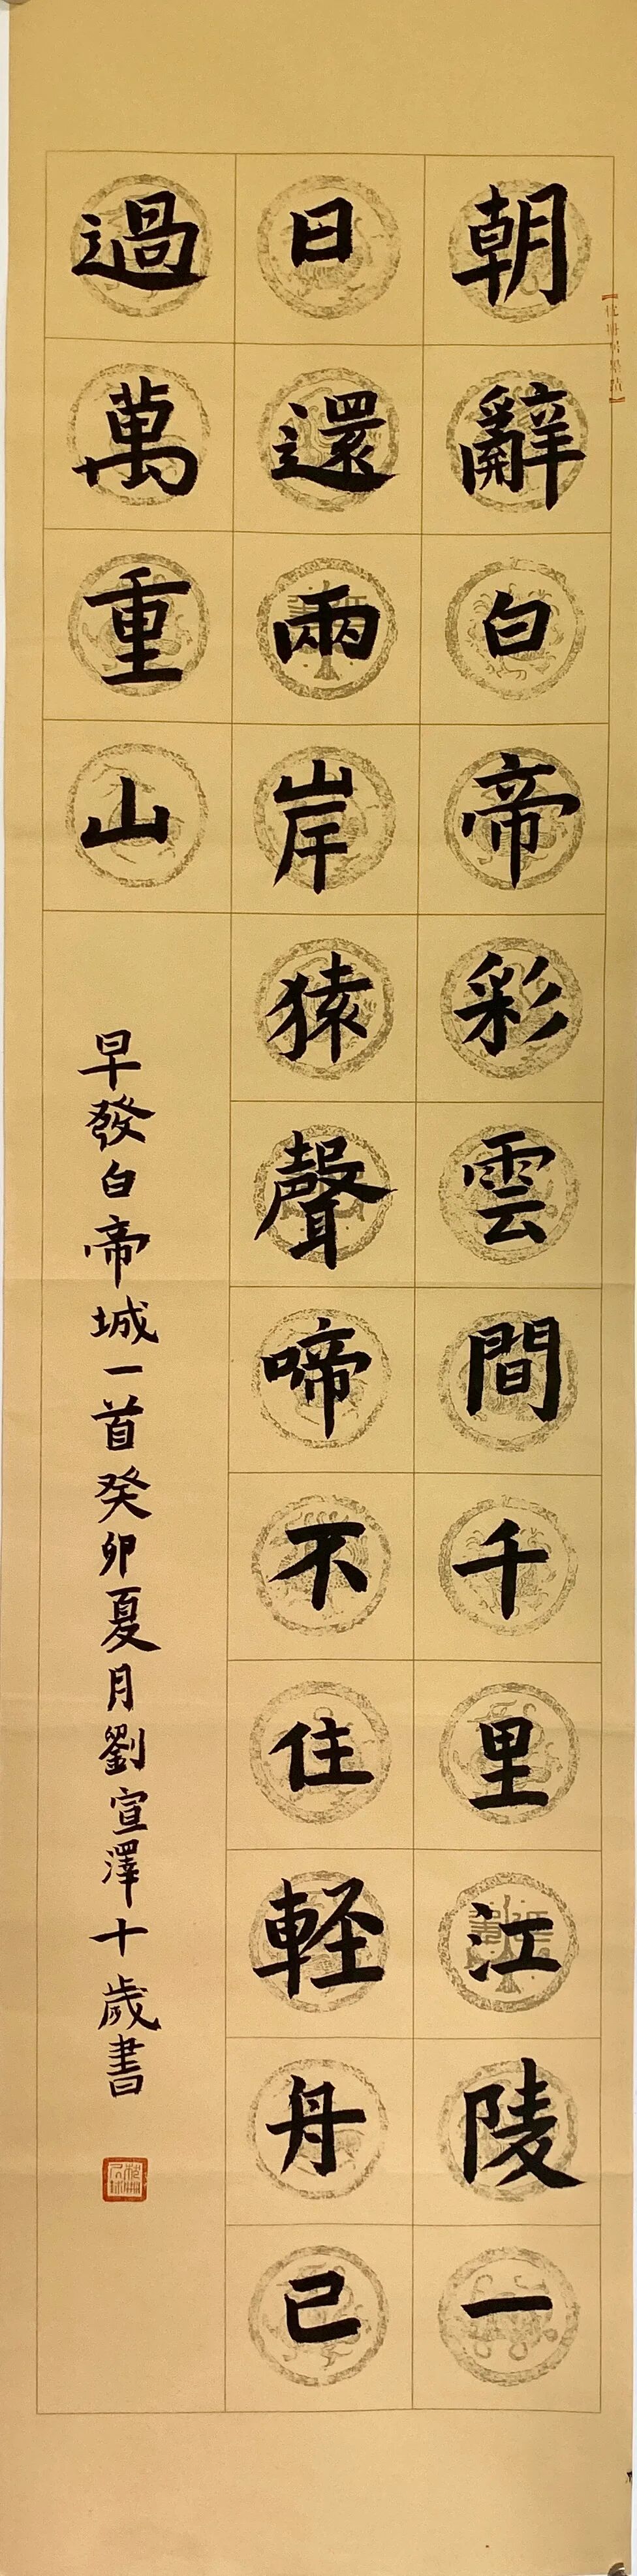 朝辭白帝彩雲間千里江陵一
日還兩岸猿聲啼不住軽舟已
過萬重山
早發白帝城一首癸卯夏月劉宣澤十歲書